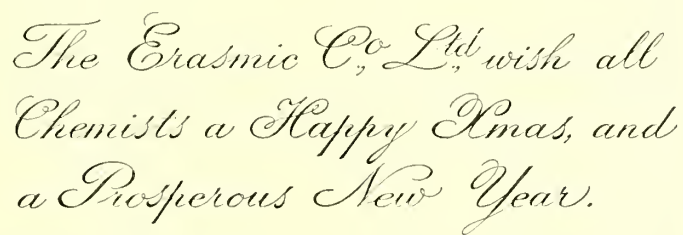 The Erasmic Co., Ltd., wish all
Chemists a Happy Xmas, and
a Prosperous New Year.